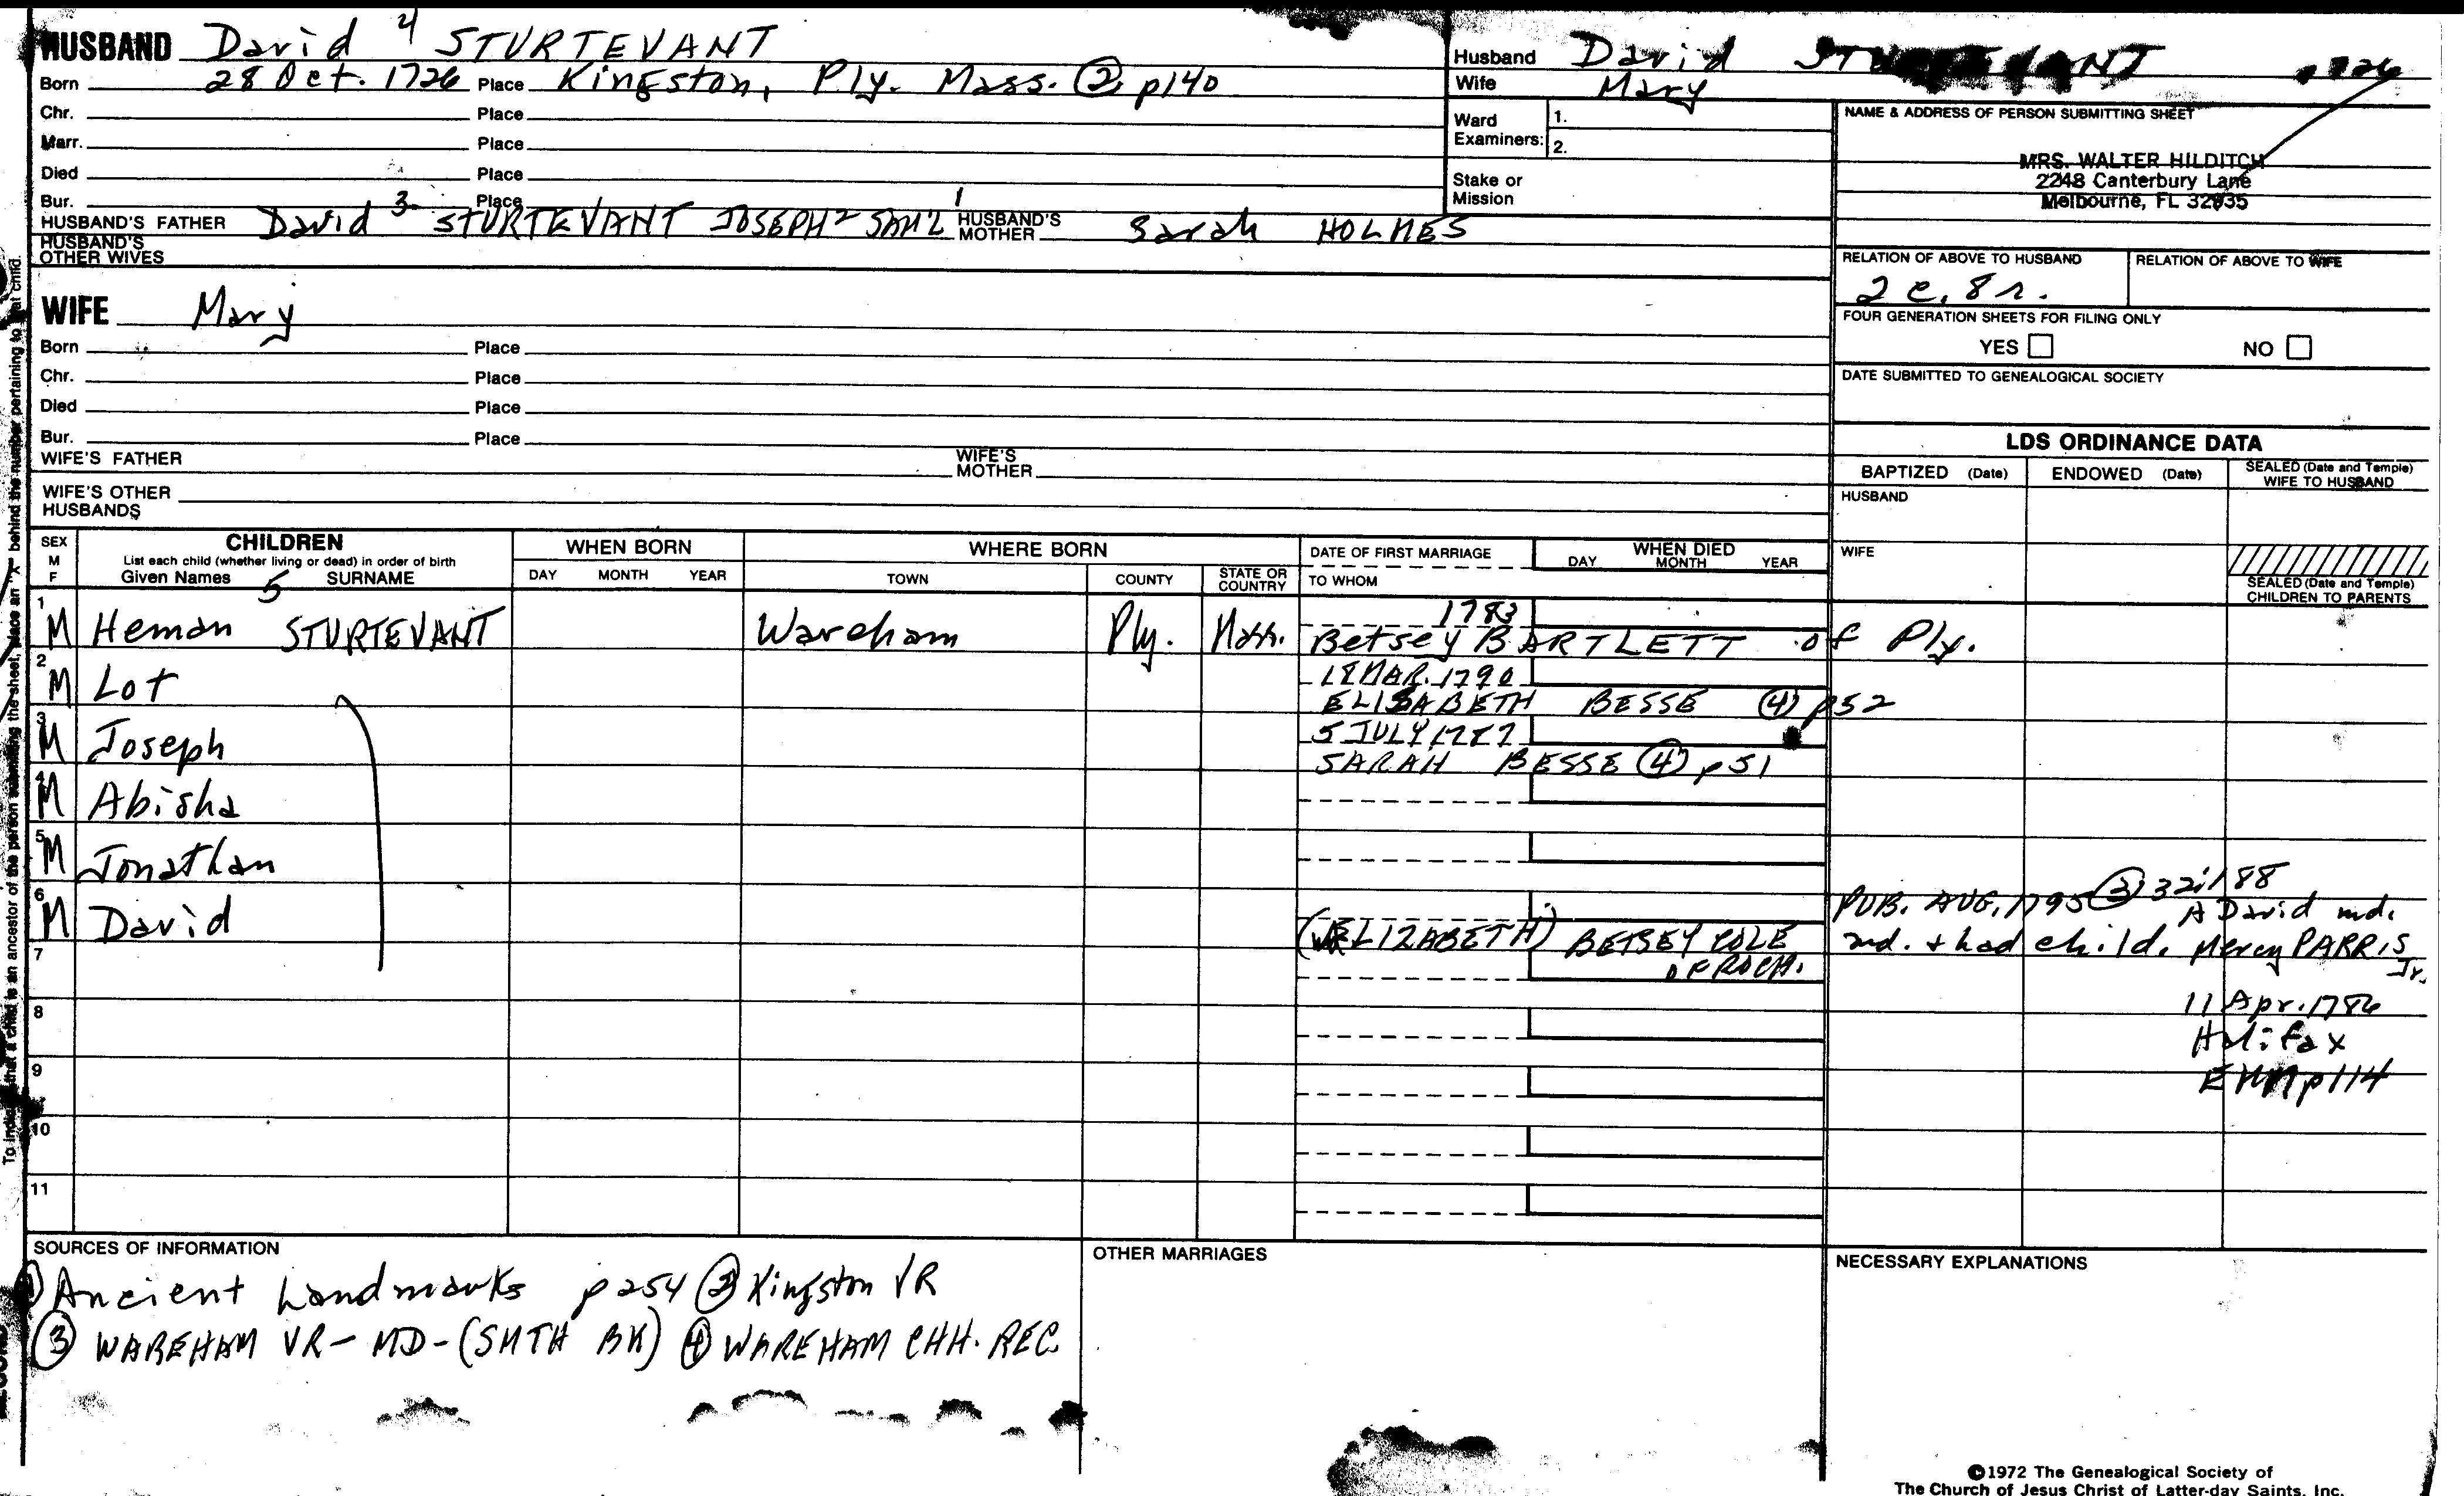 HUSBAND David 4 STURTEVANT
Born 28 Oct. 1726 Place Kingston, Ply. Mass. ② p140
Chr. Place
Marr. Place
Died Place
Bur. Place
HUSBAND'S FATHER David 3 STURTEVANT JOSEPH 2 SAM'L 1 HUSBAND'S MOTHER Sarah HOLMES
HUSBAND'S OTHER WIVES
WIFE Mary
Born Place
Chr. Place
Died Place
Bur. Place
WIFE'S FATHER WIFE'S MOTHER
WIFE'S OTHER HUSBANDS
Husband David STURTEVANT 1726
Wife Mary
Ward Examiners: 1.
2.
Stake or Mission
NAME & ADDRESS OF PERSON SUBMITTING SHEET
MRS. WALTER HILDITCH
2248 Canterbury Lane
Melbourne, FL 32935
RELATION OF ABOVE TO HUSBAND RELATION OF ABOVE TO WIFE
2 c. 8 r.
FOUR GENERATION SHEETS FOR FILING ONLY
YES NO
DATE SUBMITTED TO GENEALOGICAL SOCIETY
LDS ORDINANCE DATA
BAPTIZED (Date) ENDOWED (Date) SEALED (Date and Temple) WIFE TO HUSBAND
HUSBAND
WIFE
SEALED (Date and Temple) CHILDREN TO PARENTS
SEX M F
CHILDREN
List each child (whether living or dead) in order of birth
Given Names 5 SURNAME
WHEN BORN
DAY MONTH YEAR
WHERE BORN
TOWN COUNTY STATE OR COUNTRY
DATE OF FIRST MARRIAGE
TO WHOM
WHEN DIED
DAY MONTH YEAR
1 M Heman STURTEVANT Wareham Ply. Mass. 1783
Betsey BARTLETT of Ply.
2 M Lot 18 MAR. 1790
ELISABETH BESSE ④ p52
3 M Joseph 5 JULY 1787
SARAH BESSE ④ p51
4 M Abisha
5 M Jonathan
6 M David PUB. AUG. 1795 ③ 32:188
(ELIZABETH) BETSEY COLE
OF ROCH.
A David md.
md. + had child. Mercy PARRIS
Jr.
11 Apr. 1786
Halifax
p114
7
8
9
10
11
SOURCES OF INFORMATION
① Ancient Landmarks p254 ② Kingston VR
③ WAREHAM VR - MD - (SMTH BK) ④ WAREHAM CHH. REC.
OTHER MARRIAGES
NECESSARY EXPLANATIONS
©1972 The Genealogical Society of
The Church of Jesus Christ of Latter-day Saints, Inc.